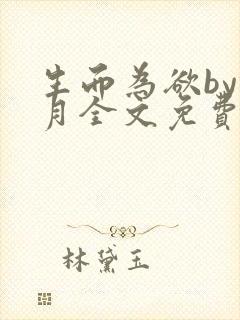 生而為欲by
月全文免費
林黛玉